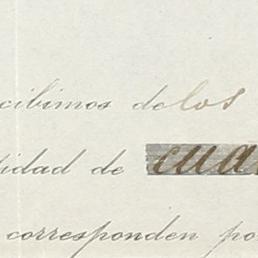 cibimos de los
tidad de cua
corresponden po